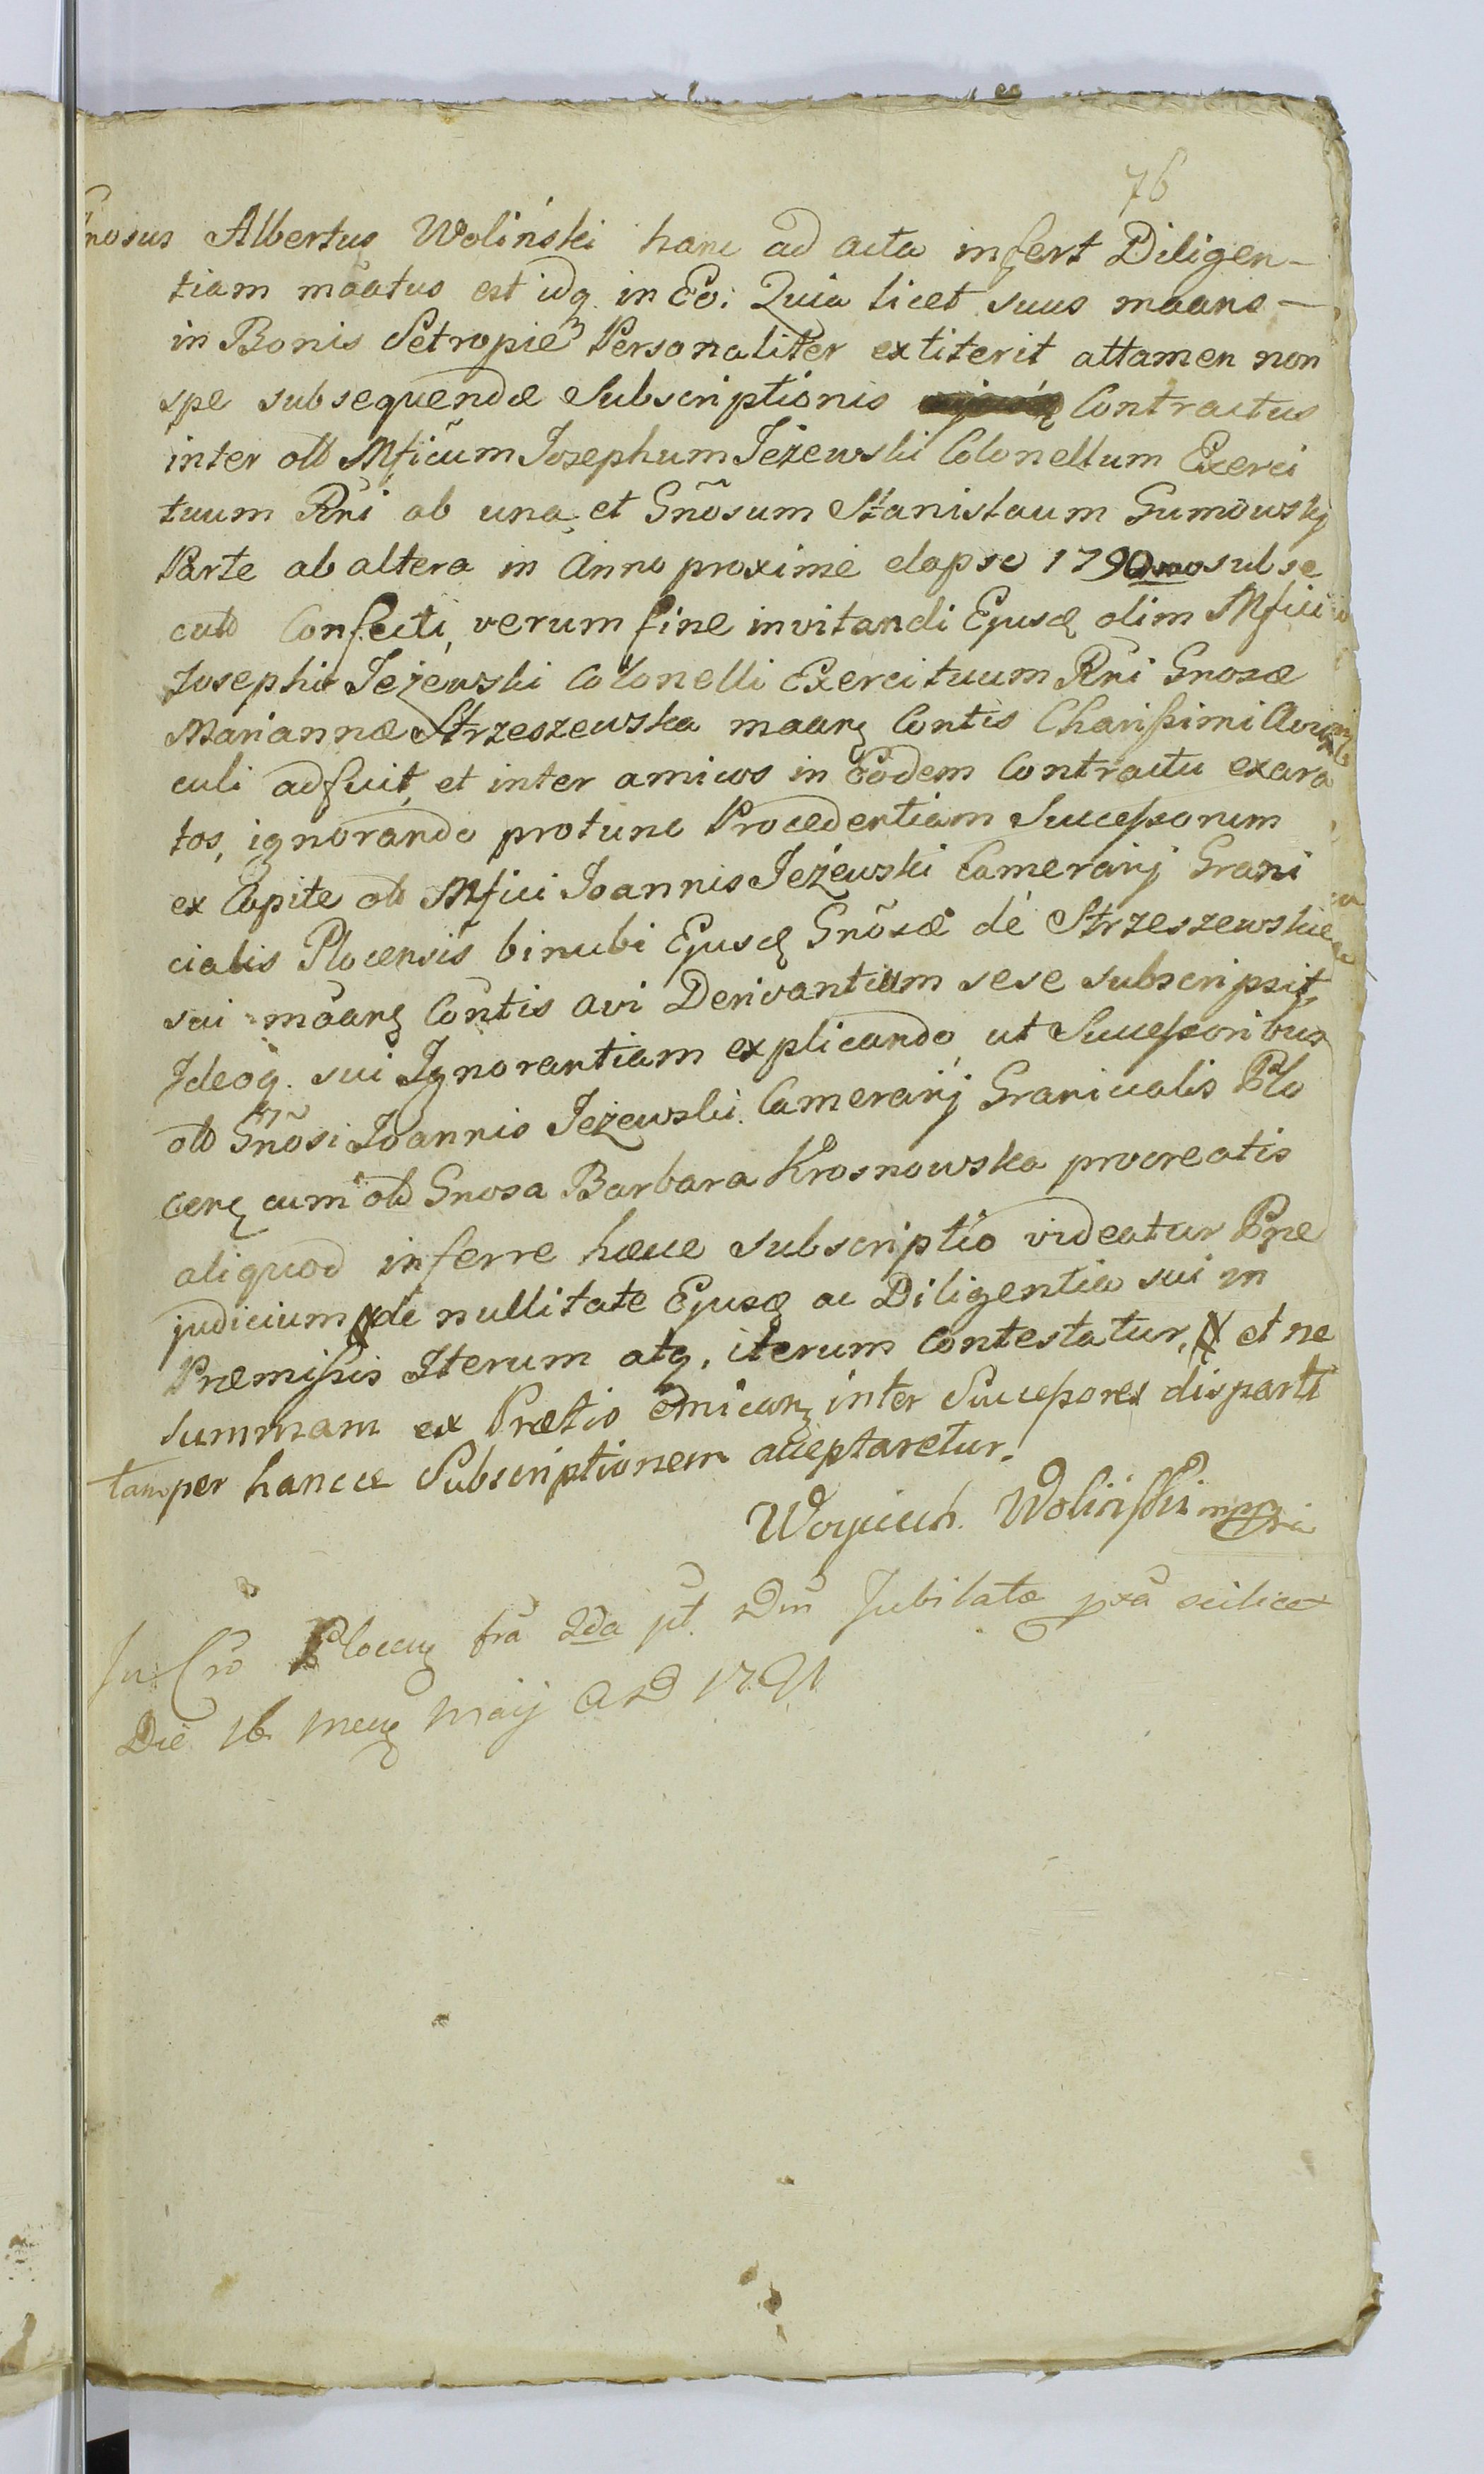 76
Gnosus Albertus Woliński hanc ad acta infert Diligen-
tiam mãatus est idq. in Eo: Quia licet suus maans
in Bonis Setropie Personaliter extiterit attamen non
spe subsequendæ Subscriptionis Contractus
inter olb Mficũm Josephum Jeżewski Colonellum Exerci
tuum Rni ab una et Gnõsum Stanislaum Gumowsky
Parte ab altera in Anno proxime elapso 1790mo subse
cuto Confecti, verum fine invitandi Ejusq olim Mfici
Josephi Jeżewski Colonelli Exercituum Rni Gnosæ
Mariannæ Strzeszewska maarę Contis Charissimi Avun
culi adfuit, et inter amicos in Eodem Contractu exara
tos, ignorando protunc Procedentiam Successorum
ex Capite olb Mfici Joannis Jeżewski Camerarij Grani
cialis Plocensis binubi Ejusq Gnõsæ de Strzeszewskie
sui mãarę Contis avi Derivantium sese subscripsit,
Ideoq. sui Ignorantiam explicando, ut Successoribus
olb Gnõsi Joannis Jeżewski Camerarij Granicialis Plo
cenę cum olb Gnosa Barbara Krosnowska procreatis
aliquod inferre hæcce subscriptio videatur Præ
judicium de nullitate Ejusq ac Diligentia sui in
Præmissis Iterum atq. iterum Contestatur. et ne
summam ex Prætio emicarę inter Successores disparti
tam per hancce Subscriptionem acceptaretur.
Woyciech. Woliński mppria
In Cro Plocenę fra 2da pt. Dm Jubilate pxa scilicet
Die 16 mensę Maij A D 1791